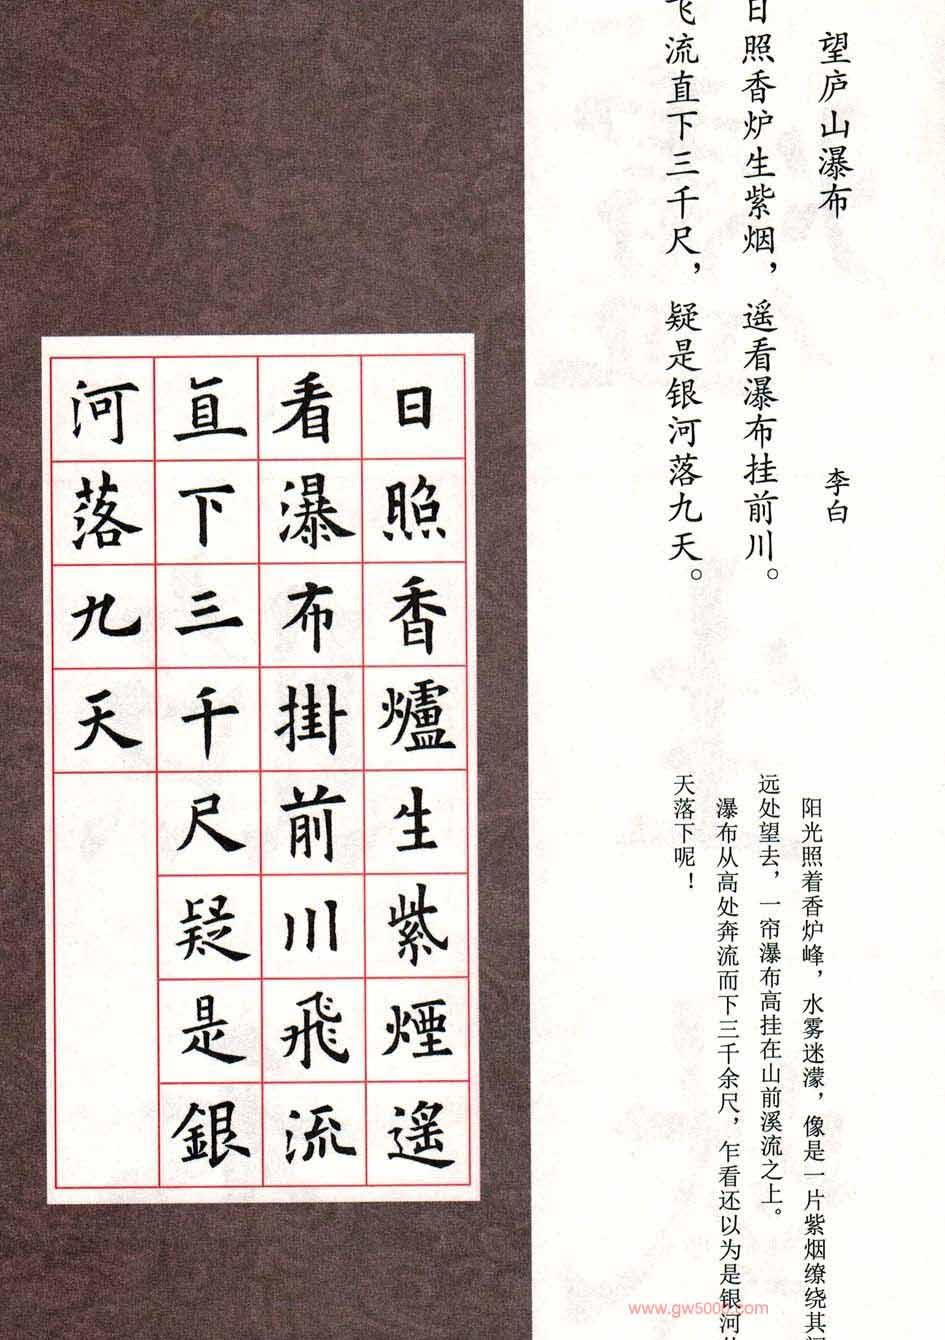 望庐山瀑布
李白
日照香炉生紫烟，遥看瀑布挂前川。
飞流直下三千尺，疑是银河落九天。
阳光照着香炉峰，水雾迷濛，像是一片紫烟缭绕其间
远处望去，一帘瀑布高挂在山前溪流之上。
瀑布从高处奔流而下三千余尺，乍看还以为是银河
天落下呢！
日照香爐生紫煙遥
看瀑布掛前川飛流
直下三千尺疑是銀
河落九天
www.gw5000.com